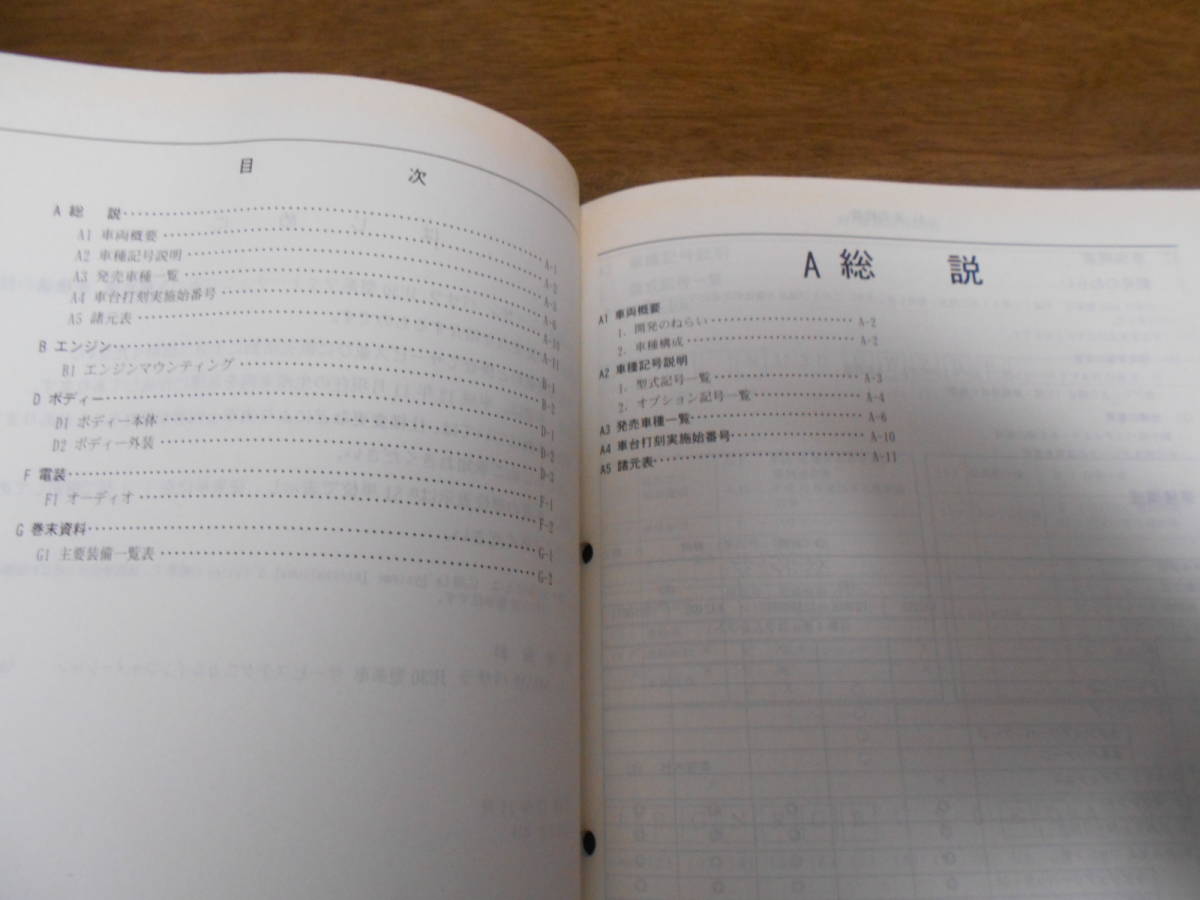 目 次
A 総 説 A-1
A1 車両概要 A-2
A2 車種記号説明 A-3
A3 発売車種一覧 A-6
A4 車台打刻実施始番号 A-10
A5 諸元表 A-11
B エンジン B-1
B1 エンジンマウンティング B-2
D ボディー D-1
D1 ボディー本体 D-2
D2 ボディー外装 D-3
F 電装 F-1
F1 オーディオ F-2
G 巻末資料 G-1
G1 主要装備一覧表 G-2
A 総 説
A1 車両概要
1. 開発のねらい A-2
2. 車種構成 A-2
A2 車種記号説明
1. 型式記号一覧 A-3
2. オプション記号一覧 A-4
A3 発売車種一覧 A-6
A4 車台打刻実施始番号 A-10
A5 諸元表 A-11